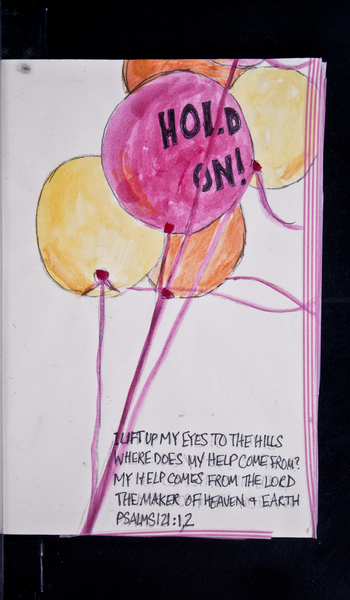 HOLD
ON!
I LIFT UP MY EYES TO THE HILLS
WHERE DOES MY HELP COME FROM?
MY HELP COMES FROM THE LORD
THE MAKER OF HEAVEN & EARTH
PSALMS 121:1,2